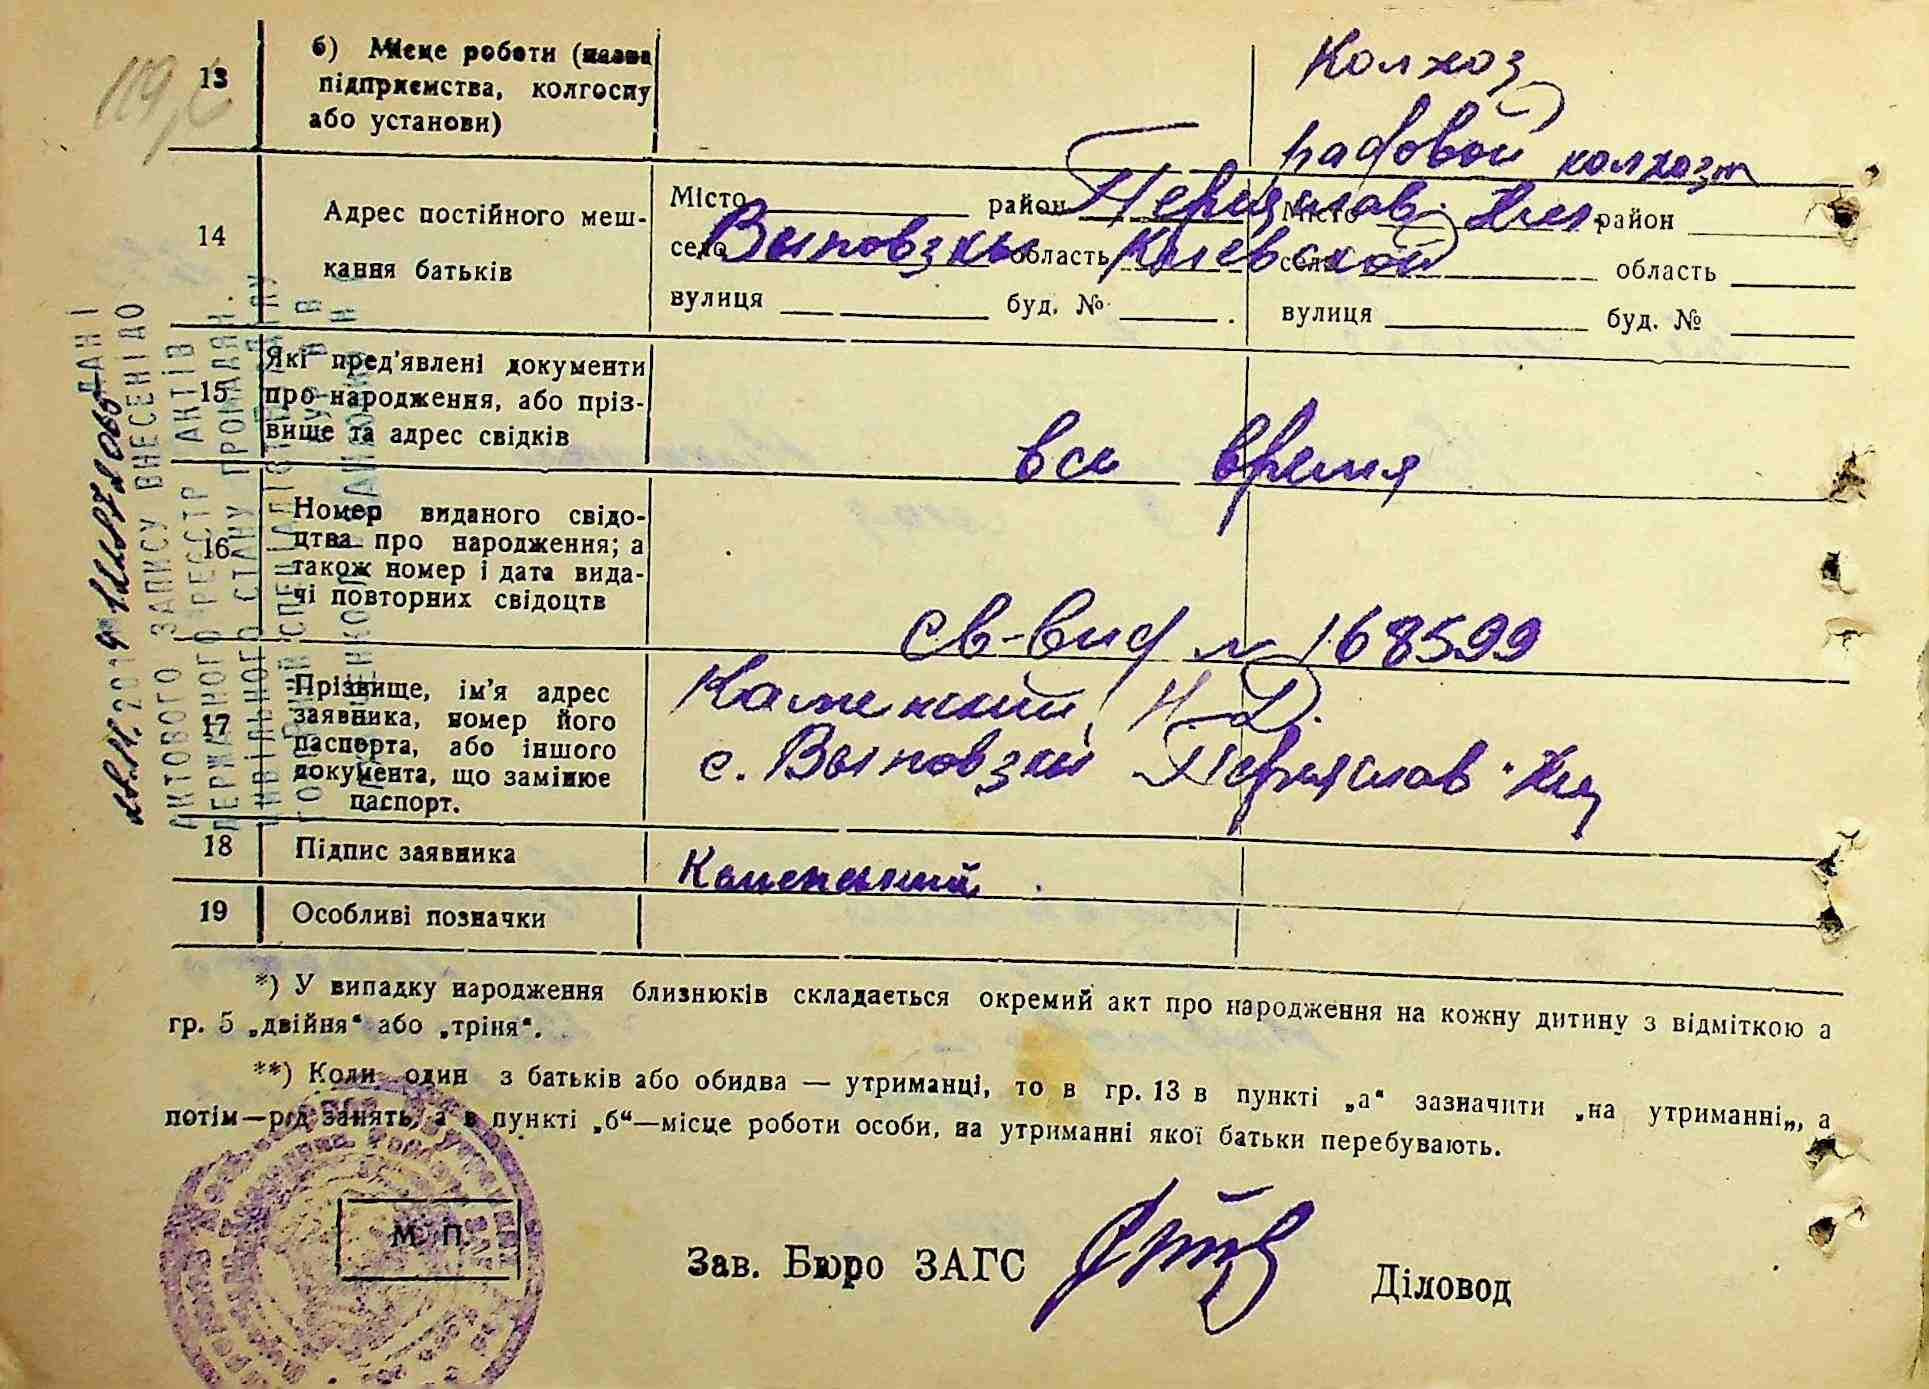 119,
13 б) Місце роботи (назва підприємства, колгоспу або установи)
Колхоз
рядовой колхозн
14 Адрес постійного меш-
кання батьків
Місто район Переяслав. Хм.
село Выповзки область Киевской
вулиця буд. №
Місто район
село область
вулиця буд. №
15 Які пред'явлені документи
про народження, або пріз-
вище та адрес свідків
все время
16 Номер виданого свідо-
цтва про народження; а
також номер і дата вида-
чі повторних свідоцтв
св-вид № 168599
17 Прізвище, ім'я адрес
заявника, номер його
паспорта, або іншого
документа, що замінює
паспорт.
Каменский Н. Д.
с. Выповзки Переяслав-Хм
18 Підпис заявника
Каменский
19 Особливі позначки
ДАНІ
АКТОВОГО ЗАПИСУ ВНЕСЕНІ ДО
ДЕРЖАВНОГО РЕЄСТР АКТІВ
ЦИВІЛЬНОГО СТАНУ ГРОМАДЯН.
*) У випадку народження близнюків складається окремий акт про народження на кожну дитину з відміткою а
гр. 5 „двійня“ або „тріня“.
**) Коли один з батьків або обидва — утриманці, то в гр. 13 в пункті „а“ зазначити „на утриманні„, а
потім—рід занять, а в пункті „б“—місце роботи особи, на утриманні якої батьки перебувають.
М. П.
Зав. Бюро ЗАГС
Діловод